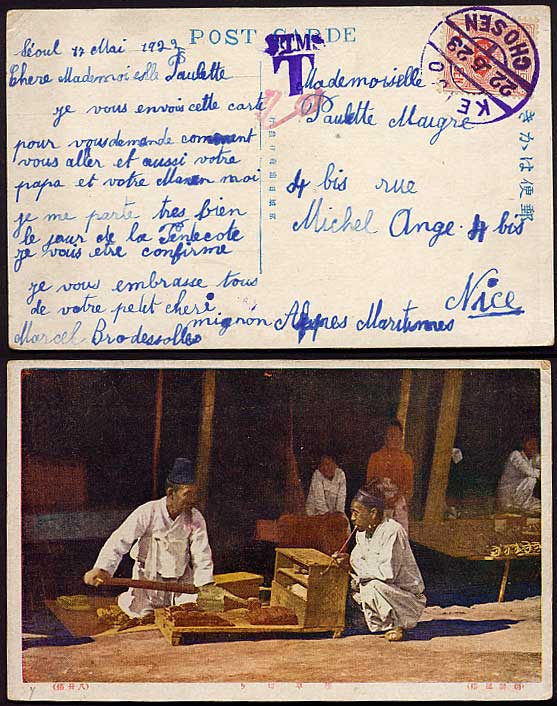 POST CARDE
Séoul 17 Mai 1922
Chere Mademoiselle Paulette
je vous envois cette carte
pour vous demande comment
vous aller et aussi votre
papa et votre Maman moi
je me parte tres bien
le jour de la Pentecote
je vais etre confirme
je vous embrasse tous
de votre petit cheri
mignon
Marcel Brodessolles
T
Mademoiselle
Paulette Maigre
4 bis rue
Michel Ange 4 bis
Nice
Alpes Maritimes
CHOSEN
22.5.23
KEIJO
きかは便郵
(八井信)